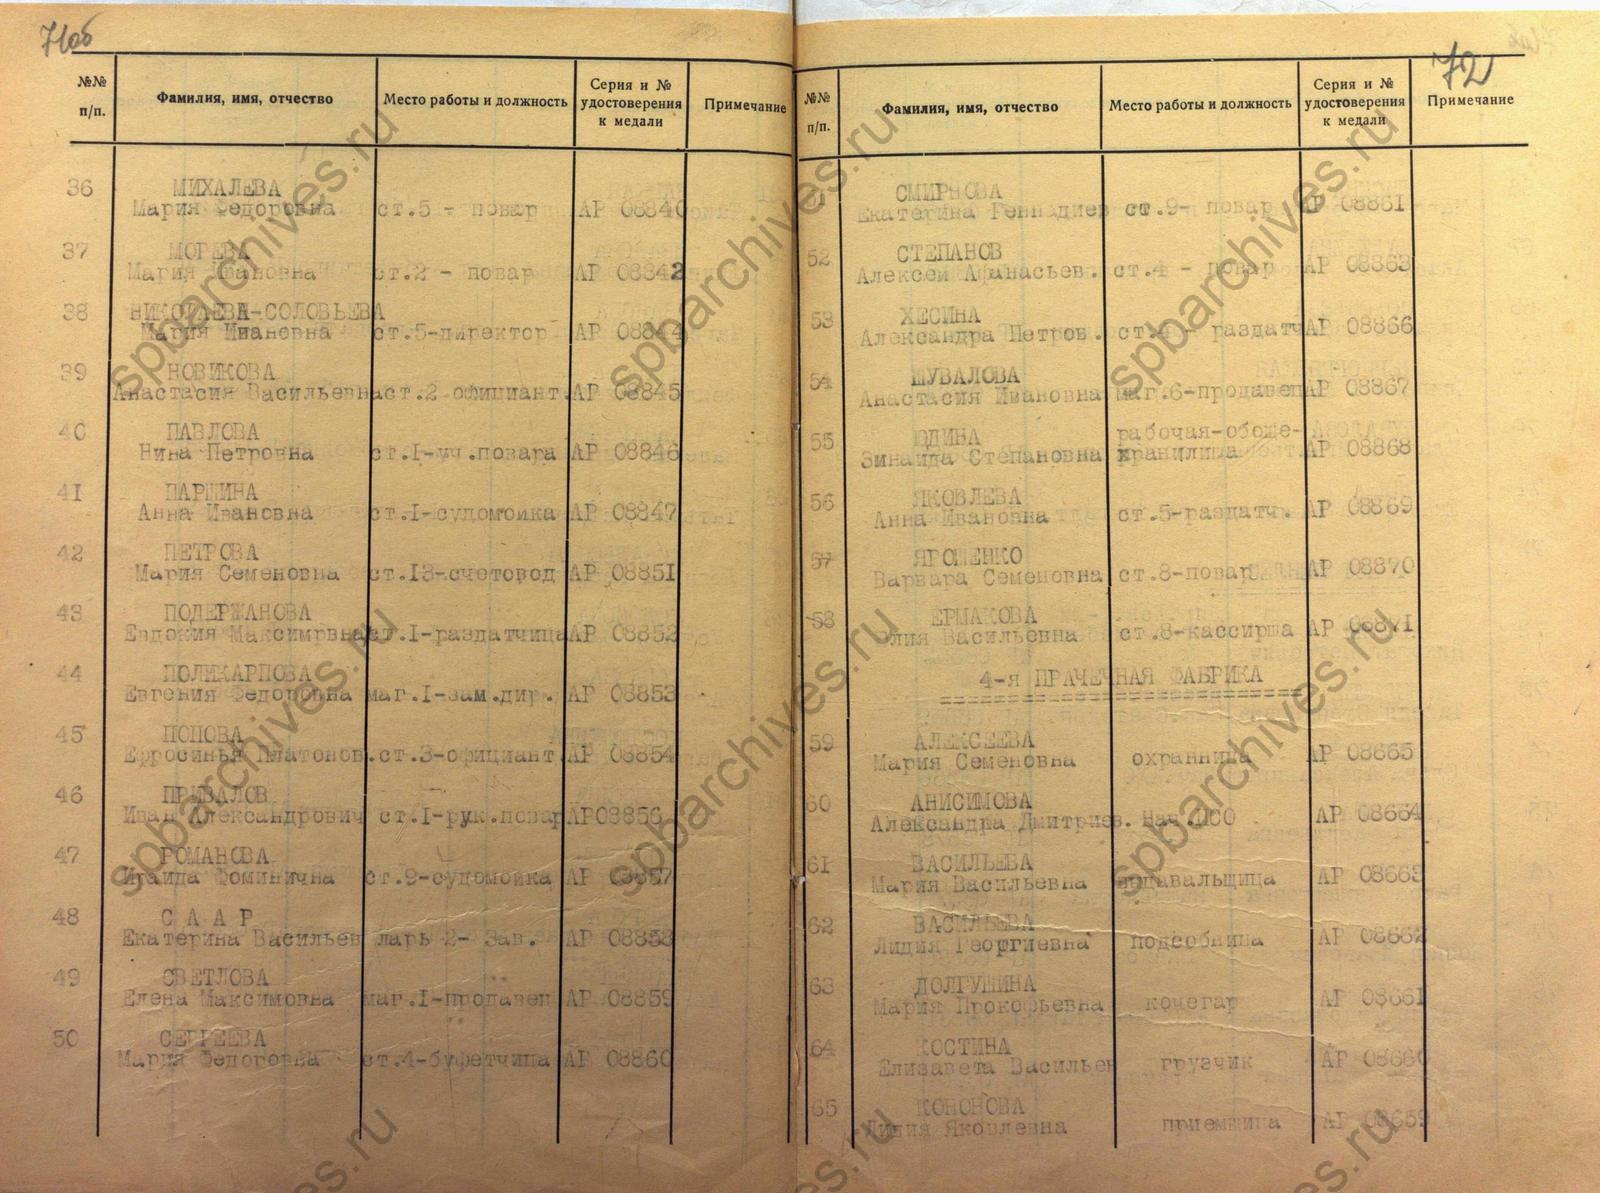 71об
№№ п/п. Фамилия, имя, отчество Место работы и должность Серия и № удостоверения к медали Примечание
36 МИХАЛЕВА
Мария Федоровна ст.5 - повар АР 08840
37 МОРЕВА
Мария Ивановна ст.2 - повар АР 08842
38 НИКОЛАЕВА-СОЛОВЬЕВА
Мария Ивановна ст.5-директор АР 08844
39 НОВИКОВА
Анастасия Васильевна ст.2 официант. АР 08845
40 ПАВЛОВА
Нина Петровна ст.I-уч.повара АР 08846
41 ПАРШИНА
Анна Ивановна ст.I-судомойка АР 08847
42 ПЕТРОВА
Мария Семеновна ст.13-счетовод АР 08851
43 ПОДЕРЖАНОВА
Евдокия Максимрвна ст.I-раздатчица АР 08852
44 ПОЛИКАРПОВА
Евгения Федоровна маг.I-зам.дир. АР 08853
45 ПОПОВА
Ефросинья Платонов. ст.3-официант. АР 08854
46 ПРИВАЛОВ
Иван Александрович ст.I-рук.повар АР08856
47 РОМАНОВА
Ираида Фоминична ст.9-судомойка АР 08857
48 С А А Р
Екатерина Васильев ларь 2- Зав. АР 08858
49 СВЕТЛОВА
Елена Максимовна маг.I-продавец АР 08859
50 СЕРГЕЕВА
Мария Федоровна ст.4-буфетчица АР 08860
72
№№ п/п. Фамилия, имя, отчество Место работы и должность Серия и № удостоверения к медали Примечание
СМИРНОВА
Екатерина Геннадиев ст.9- повар АР 08861
52 СТЕПАНОВ
Алексей Афанасьев. ст.4 - повар АР 08863
53 ХЕСИНА
Александра Петров. ст.4 - раздатч АР 08866
54 ШУВАЛОВА
Анастасия Ивановна маг.6-продавец АР 08867
55 ЮДИНА рабочая-обоще-
Зинаида Степановна хранилища АР 08868
56 ЯКОВЛЕВА
Анна Ивановна ст.5-раздатч. АР 08869
57 ЯРОШЕНКО
Варвара Семеновна ст.8-повар АР 08870
58 ЕРМАКОВА
Юлия Васильевна ст.8-кассирша АР 08871
4-я ПРАЧЕЧНАЯ ФАБРИКА
59 АЛЕКСЕЕВА
Мария Семеновна охранница АР 08665
60 АНИСИМОВА
Александра Дмитриев. Нач.ПСО АР 08664
61 ВАСИЛЬЕВА
Мария Васильевна подавальщица АР 08663
62 ВАСИЛЬЕВА
Лидия Георгиевна подсобница АР 08662
63 ДОЛГУШИНА
Мария Прокофьевна кочегар АР 08661
64 КОСТИНА
Елизавета Васильев грузчик АР 08660
65 КОНОНОВА
Лидия Яковлевна приемщица АР 08659
spbarchives.ru
spbarchives.ru
spbarchives.ru
spbarchives.ru
spbarchives.ru
spbarchives.ru